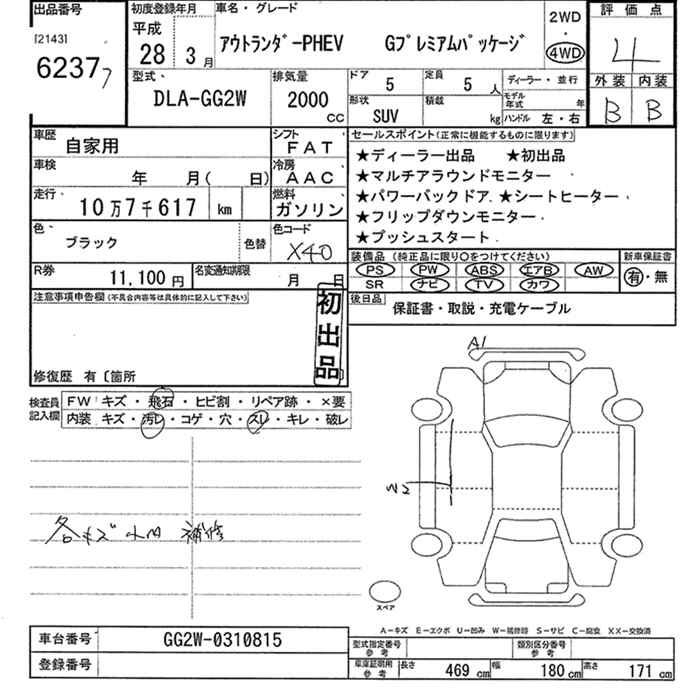 出品番号 初度登録年月 車名・グレード 2WD 評価点
[2143] 平成 アウトランダーPHEV Gプレミアムパッケージ 4WD 4
6237 28年 3月
型式 排気量 ドア 定員 ディーラー・並行 外装 内装
DLA-GG2W 2000 cc 5 5人 モデル年式 年 B B
形状 積載 SUV kg ハンドル 左・右
車歴 自家用 シフト FAT セールスポイント(正常に機能するものに限ります)
★ディーラー出品 ★初出品
車検 年 月( 日) 冷房 AAC ★マルチアラウンドモニター
走行 10万7千617 km 燃料 ガソリン ★パワーバックドア ★シートヒーター
★フリップダウンモニター
色 ブラック 色替 色コード X40 ★プッシュスタート
装備品(純正品に限り○をつけてください) 新車保証書
PS PW ABS エアB AW 有・無
SR ナビ TV カワ
R券 11,100円 名変通知期限 月 日
注意事項申告欄(不具合内容等は具体的に記入して下さい) 初出品 後日品 保証書・取説・充電ケーブル
修復歴 有〔箇所
A1
検査員記入欄 FW キズ・飛石・ヒビ割・リペア跡・×要
内装 キズ・汚レ・コゲ・穴・スレ・キレ・破レ
各キズ 凹 補修
スペア
A-キズ E-エクボ U-凹み W-補修跡 S-サビ C-腐食 XX-交換済
車台番号 GG2W-0310815 型式指定番号 参考 類別区分番号 参考
登録番号 車庫証明用 参考 長さ 469 cm 幅 180 cm 高さ 171 cm